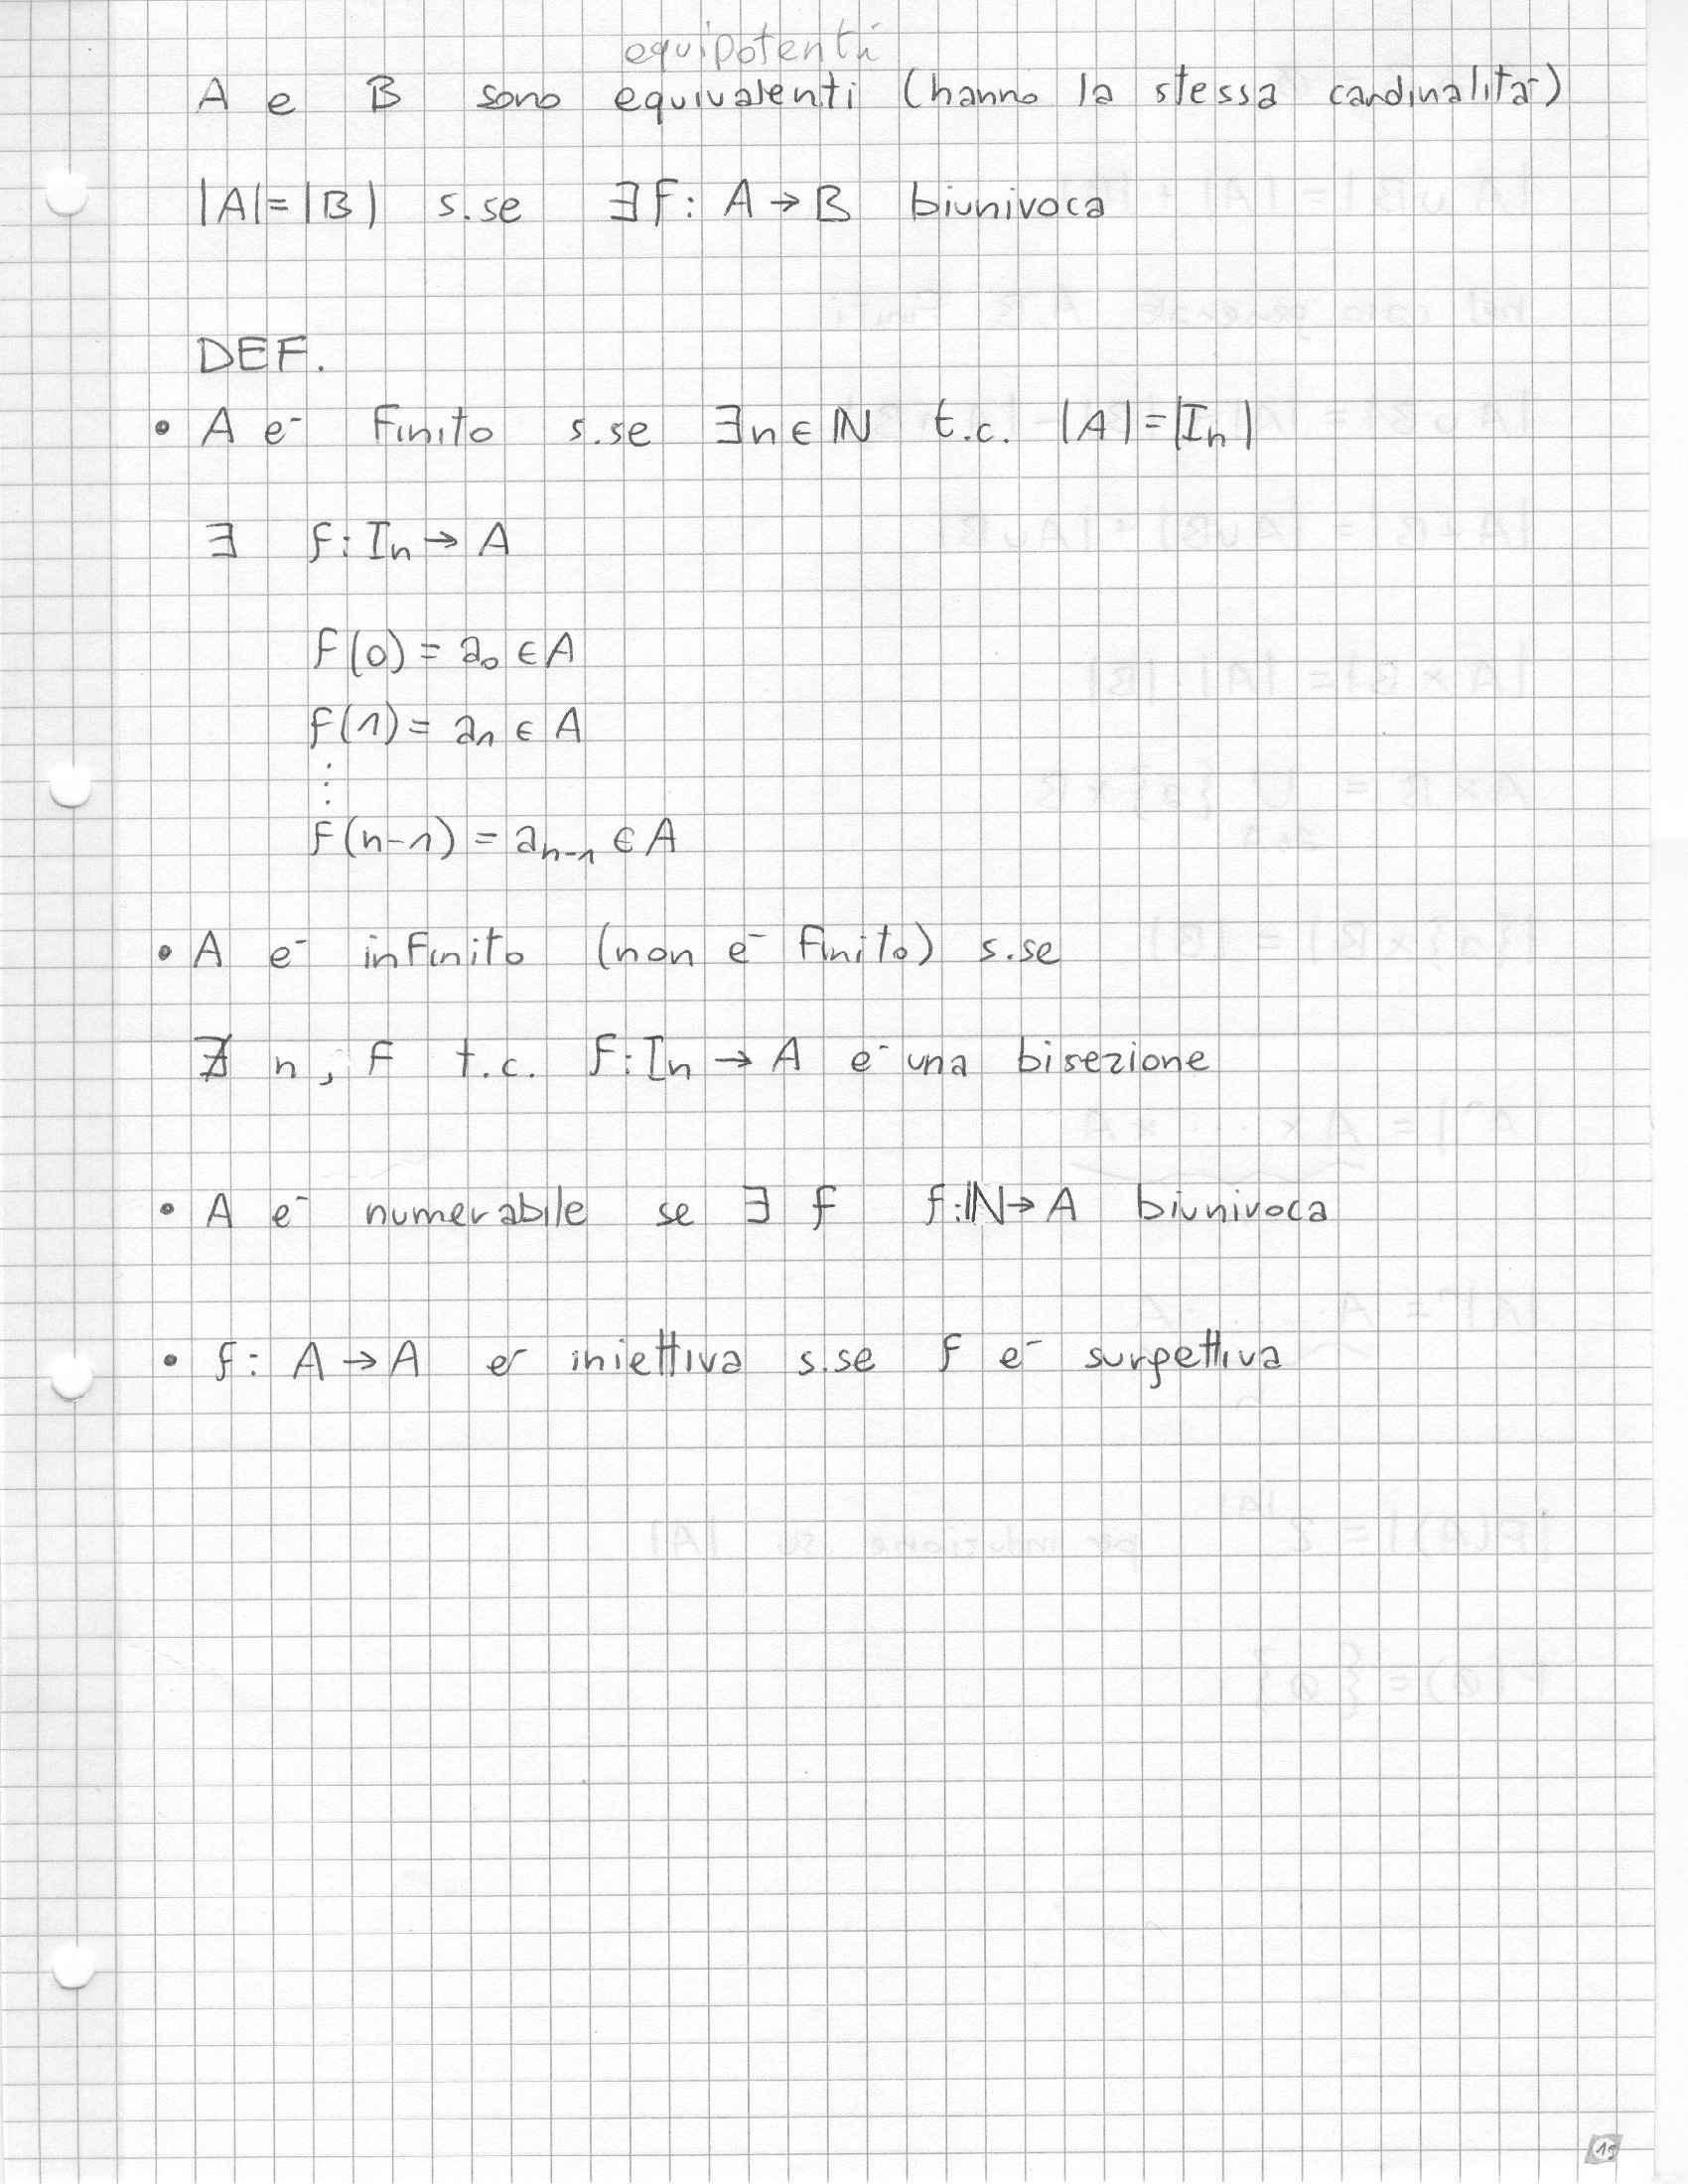 equipotenti
A e B sono equivalenti (hanno la stessa cardinalità)
|A|=|B| s.se ∃f: A→B biunivoca
DEF.
• A è finito s.se ∃n∈ℕ t.c. |A|=|In|
∃ f: In → A
f(0) = a0 ∈ A
f(1) = a1 ∈ A
⋮
f(n-1) = an-1 ∈ A
• A è infinito (non è finito) s.se
∄ n, f t.c. f: In → A è una bisezione
• A è numerabile se ∃ f f:ℕ→A biunivoca
• f: A→A è iniettiva s.se f è surgettiva
15